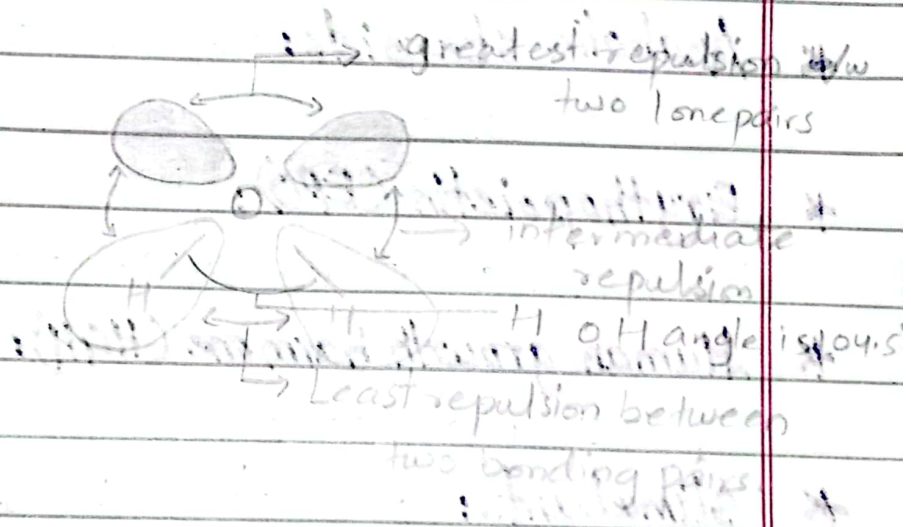 greatest repulsion b/w
two lone pairs
O
intermediate
repulsion
H
H
H O H angle is 104.5
Least repulsion between
two bonding pairs.